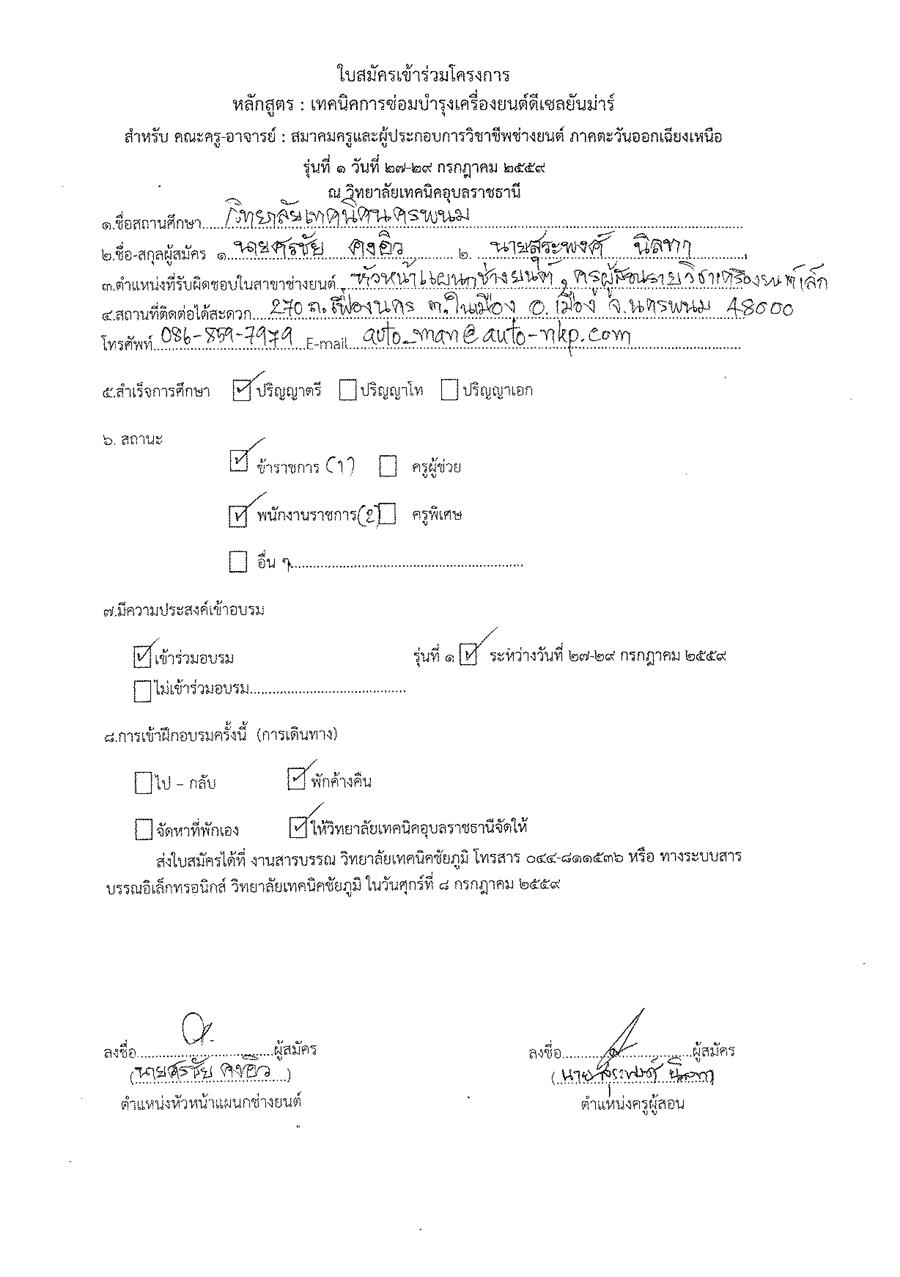 ใบสมัครเข้าร่วมโครงการ
หลักสูตร : เทคนิคการซ่อมบำรุงเครื่องยนต์ดีเซลยันม่าร์
สำหรับ คณะครู-อาจารย์ : สมาคมครูและผู้ประกอบการวิชาชีพช่างยนต์ ภาคตะวันออกเฉียงเหนือ
รุ่นที่ ๑ วันที่ ๒๗-๒๙ กรกฎาคม ๒๕๕๙
ณ วิทยาลัยเทคนิคอุบลราชธานี
๑.ชื่อสถานศึกษา วิทยาลัยเทคนิคนครพนม
๒.ชื่อ-สกุลผู้สมัคร ๑ นายศรชัย คงอิว ๒. นายสุระพงค์ นิลทา
๓.ตำแหน่งที่รับผิดชอบในสาขาช่างยนต์ หัวหน้าแผนกช่างยนต์ , ครูผู้สอนรายวิชาเครื่องยนต์เล็ก
๔.สถานที่ติดต่อได้สะดวก 270 ถ.เฟื่องนคร ต.ในเมือง อ.เมือง จ.นครพนม 48000
โทรศัพท์ 086-859-7979 E-mail auto_man@auto-nkp.com
๕.สำเร็จการศึกษา ปริญญาตรี ปริญญาโท ปริญญาเอก
๖. สถานะ
ข้าราชการ (1) ครูผู้ช่วย
พนักงานราชการ(2) ครูพิเศษ
อื่น ๆ
๗.มีความประสงค์เข้าอบรม
เข้าร่วมอบรม รุ่นที่ ๑ ระหว่างวันที่ ๒๗-๒๙ กรกฎาคม ๒๕๕๙
ไม่เข้าร่วมอบรม
๘.การเข้าฝึกอบรมครั้งนี้ (การเดินทาง)
ไป – กลับ พักค้างคืน
จัดหาที่พักเอง ให้วิทยาลัยเทคนิคอุบลราชธานีจัดให้
ส่งใบสมัครได้ที่ งานสารบรรณ วิทยาลัยเทคนิคชัยภูมิ โทรสาร ๐๔๔-๘๑๑๕๓๖ หรือ ทางระบบสาร
บรรณอิเล็กทรอนิกส์ วิทยาลัยเทคนิคชัยภูมิ ในวันศุกร์ที่ ๘ กรกฎาคม ๒๕๕๙
ลงชื่อ ผู้สมัคร ลงชื่อ ผู้สมัคร
(นายศรชัย คงอิว) (นายสุระพงค์ นิลทา)
ตำแหน่งหัวหน้าแผนกช่างยนต์ ตำแหน่งครูผู้สอน